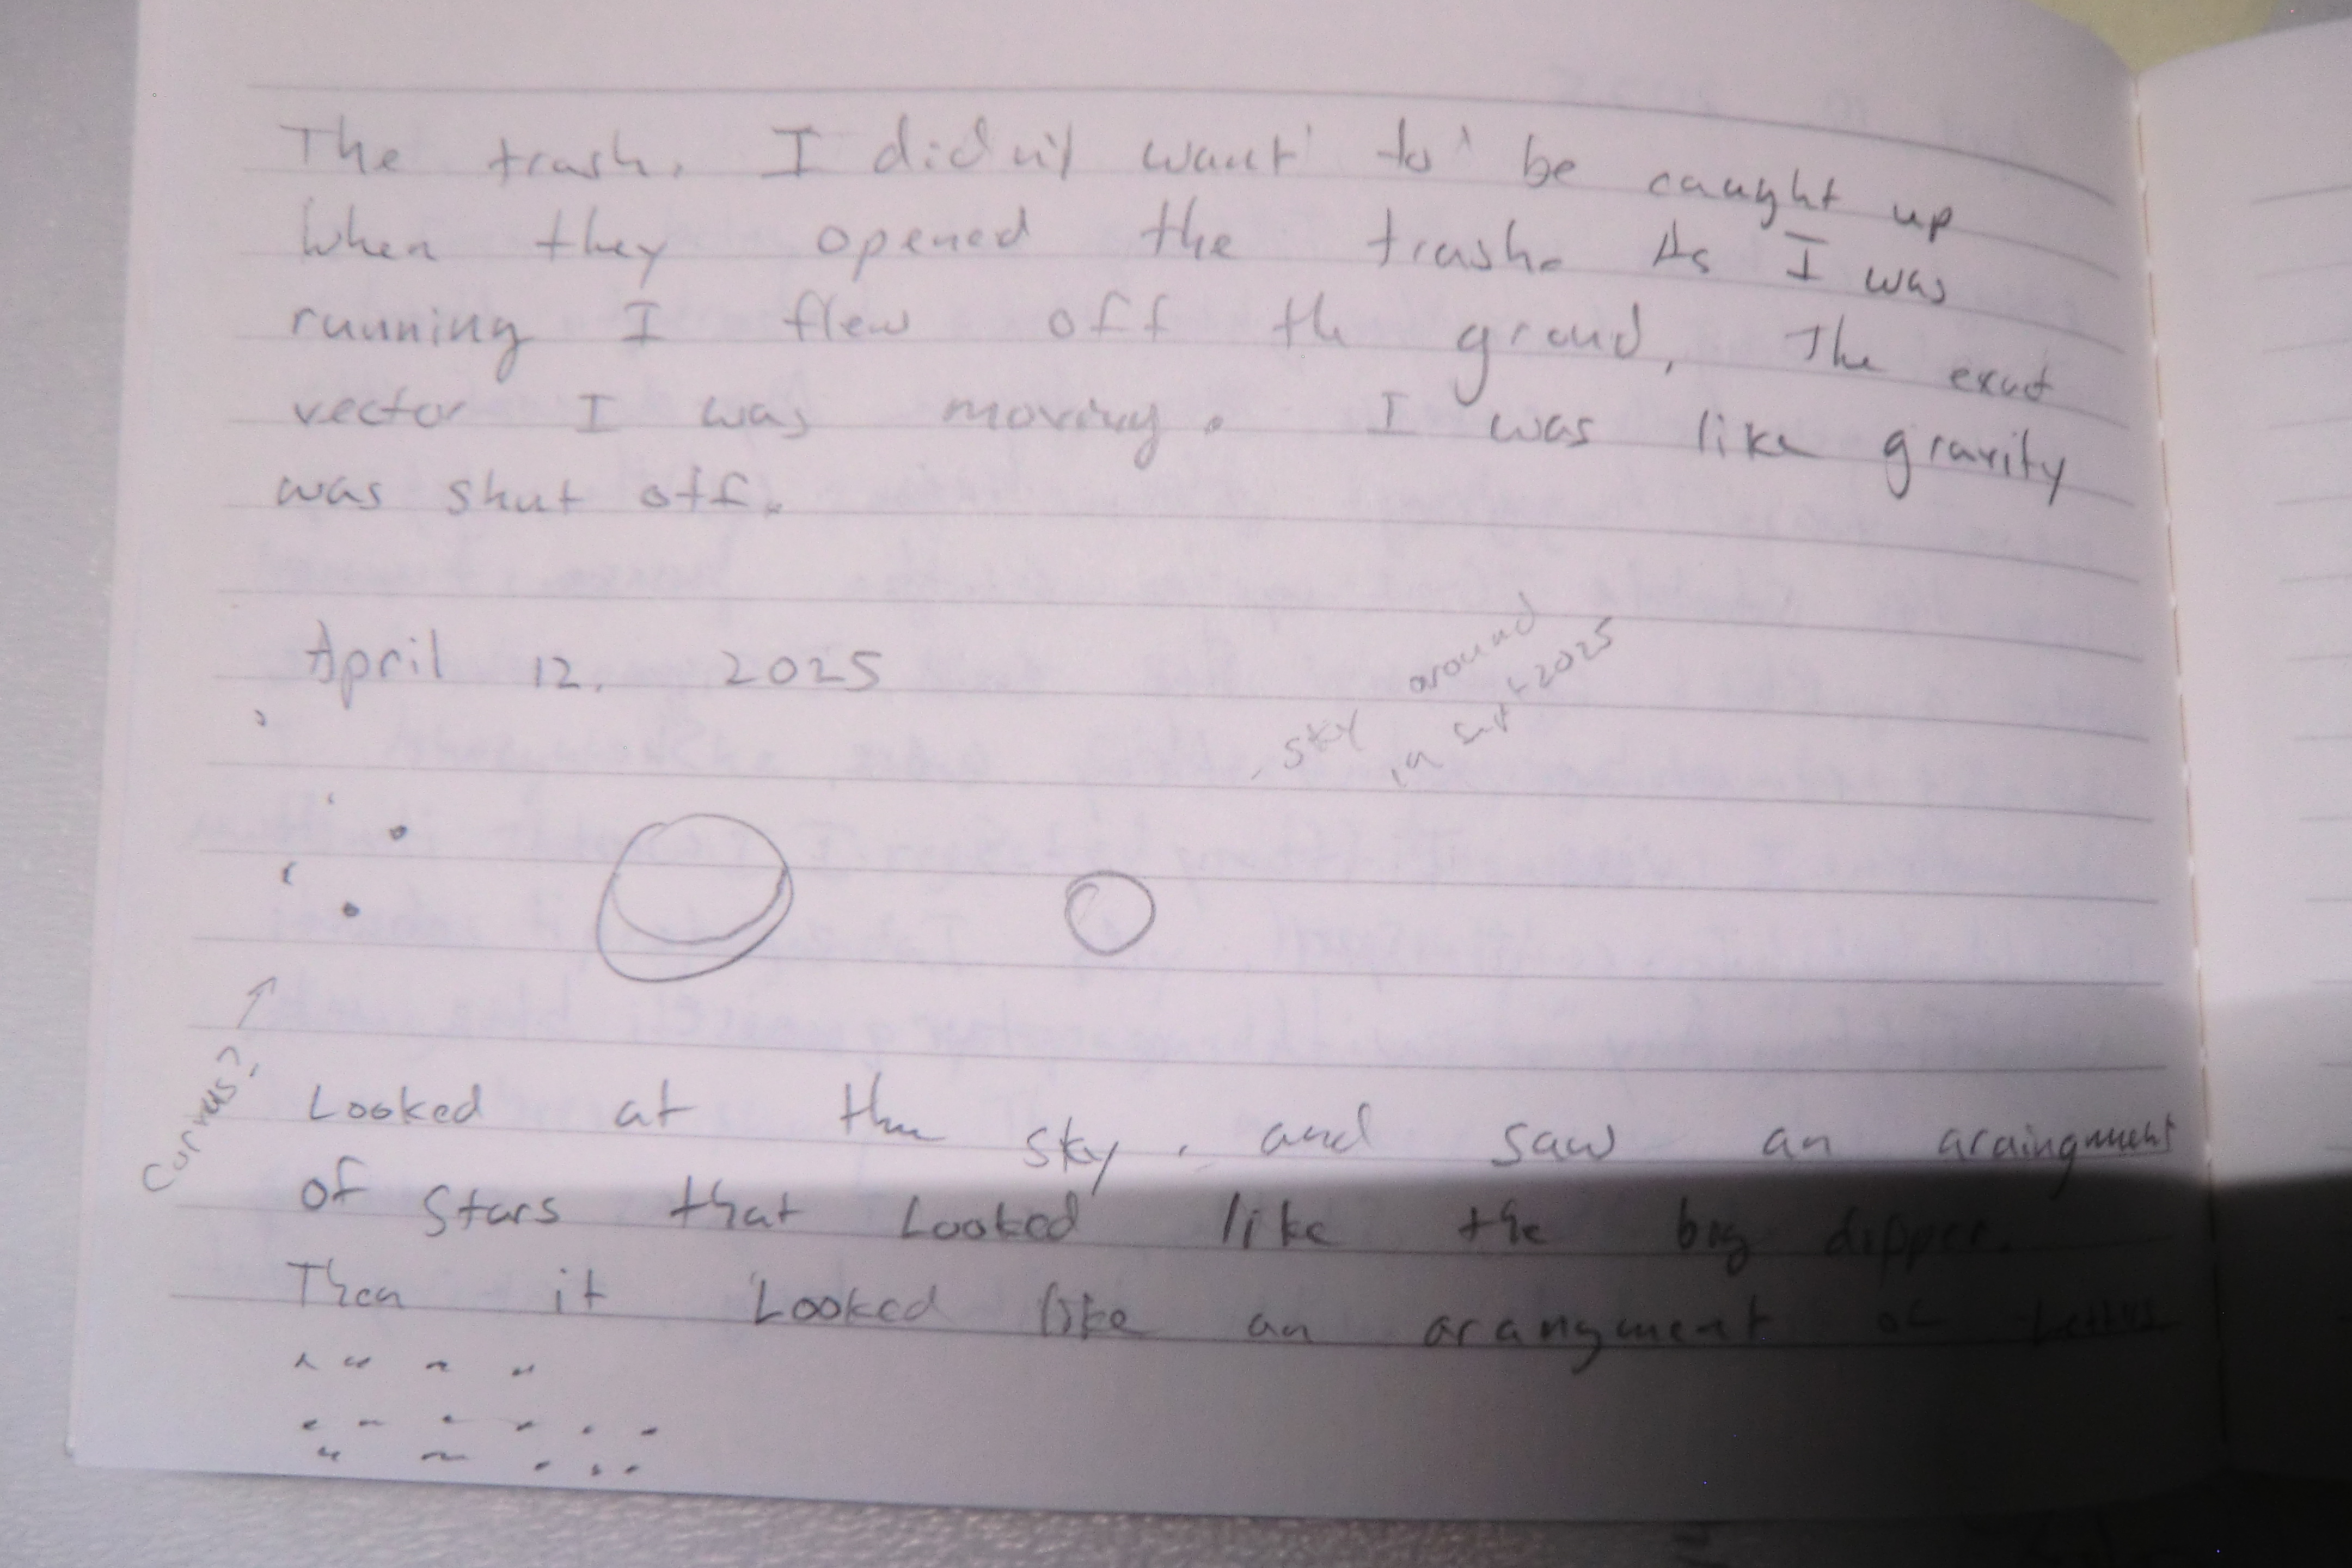 The trash. I didn't want to be caught up
When they opened the trash. As I was
running I flew off the groud, The exact
vector I was moving. I was like gravity
was shut off.
April 12, 2025
sky around
in sept 2025
Corvus?
Looked at the sky, and saw an araingment
of stars that Looked like the big dipper.
Then it Looked like an arangment of